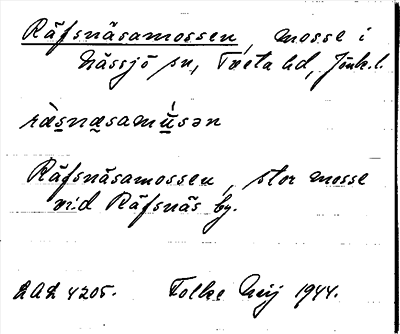 Räfsnäsamossen, mosse i
Nässjö sn, Tveta hd, Jönk. l.
ràsnæsamu̇́sən
Räfsnäsamossen, stor mosse
vid Räfsnäs by.
LAL 4205. Folke Neij 1944.